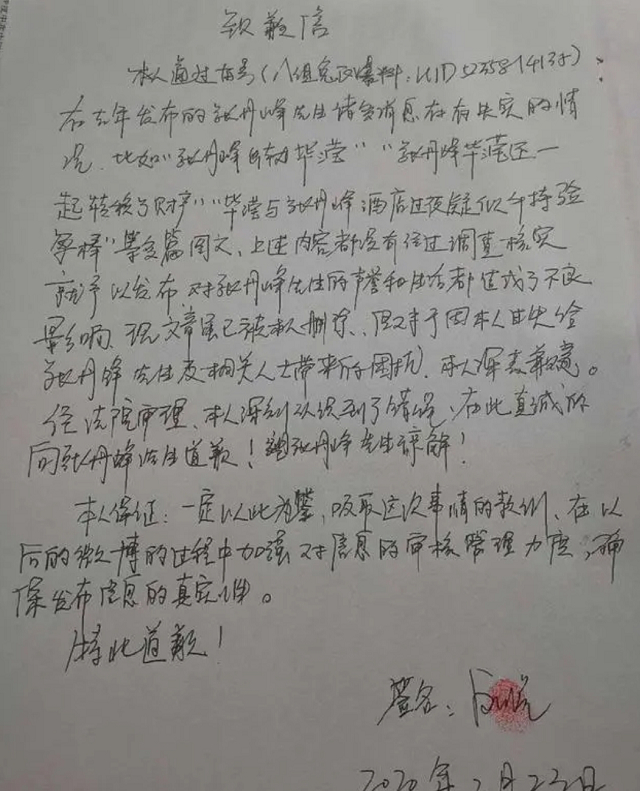 致歉信
本人通过本号(八组兔区爆料,UID 5235814137),
在去年发布的张丹峰先生诸多消息存有失实的情
况,比如"张丹峰 毕滢""张丹峰毕滢还一
起转移了财产""毕滢与张丹峰酒店过夜疑似
"等多篇图文,上述内容都没有经过调查核实
就予以发布,对张丹峰先生的声誉和生活都造成了不良
影响,现文章虽已被本人删除,但对于因本人过失给
张丹峰先生及相关人士带来的困扰,本人深表歉意。
经法院审理,本人深刻认识到了错误,在此真诚的
向张丹峰先生道歉!望张丹峰先生谅解!
本人保证:一定以此为鉴,吸取这次事情的教训,在以
后的微博的过程中加强对信息的审核管理力度,确
保发布信息的真实性。
特此道歉!
签名:
2020年2月23日